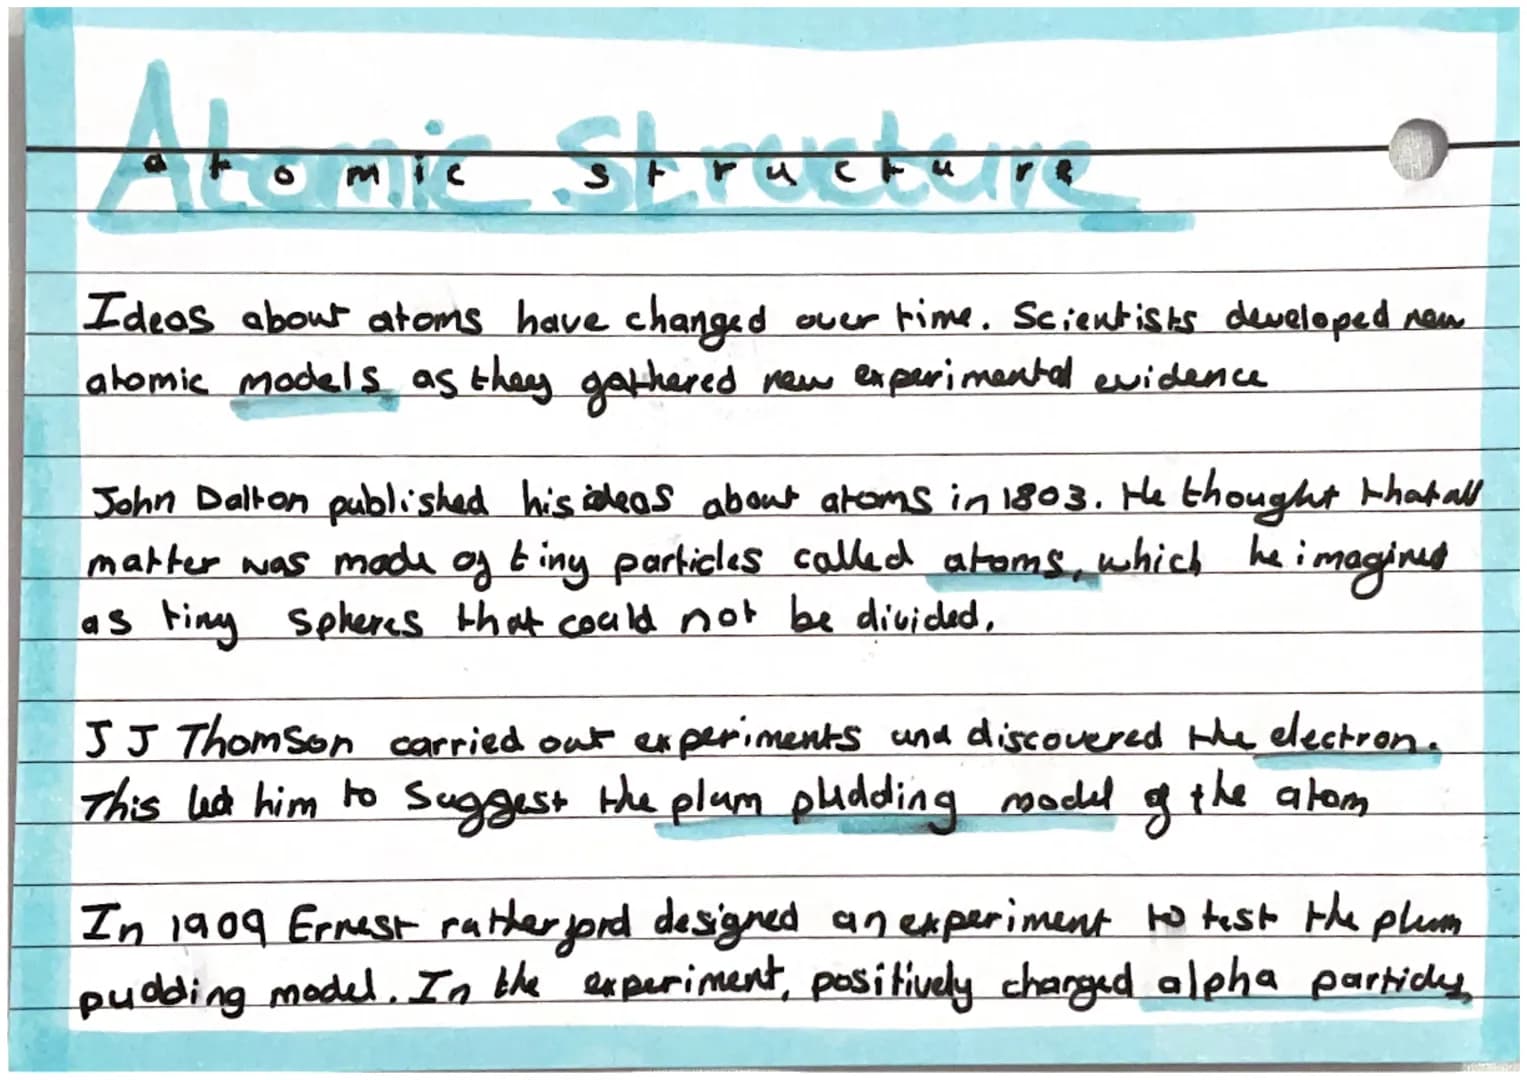 Atomic Structure
atomic structure
Ideas about atoms have changed over time. Scientists developed new
atomic models as they gathered new experimental evidence
John Dalton published his ideas about atoms in 1803. He thought that all
matter was made of tiny particles called atoms, which he imagined
as tiny spheres that could not be divided.
J J Thomson carried out experiments and discovered the electron.
This led him to suggest the plum pudding model of the atom
In 1909 Ernest rutherford designed an experiment to test the plum
pudding model. In the experiment, positively charged alpha particles